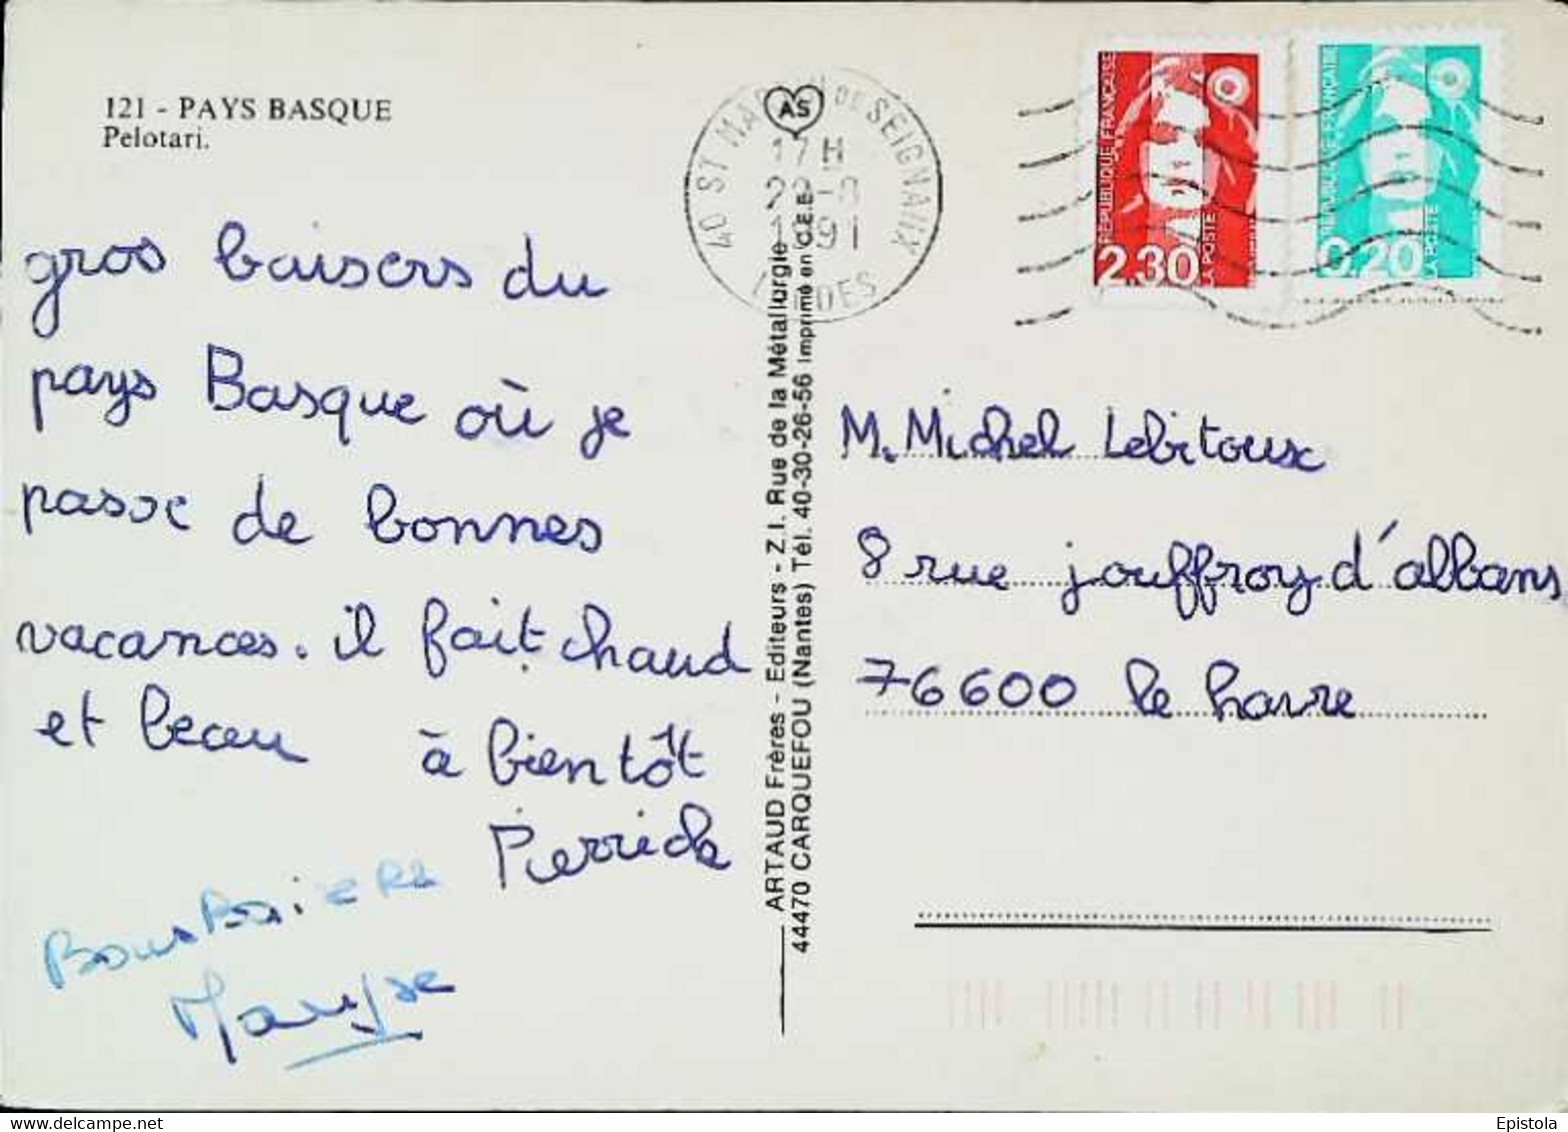 121 - PAYS BASQUE
Pelotari.
gros baisers du
pays Basque où je
passe de bonnes
vacances. il fait chaud
et beau à bientôt
Pierrick
Maryse
AS
40 ST MARTIN DE SEIGNAIX
17H
29-8
1991
LANDES
ARTAUD Frères - Editeurs - Z.I. Rue de la Métallurgie
44470 CARQUEFOU (Nantes) Tél. 40-30-26-56 Imprimé en C.E.E.
RÉPUBLIQUE FRANÇAISE
2.30
LA POSTE
RÉPUBLIQUE FRANÇAISE
0,20
LA POSTE
M. Michel Lebitoux
8 rue jouffroy d'albans
76600 le havre
Epistola